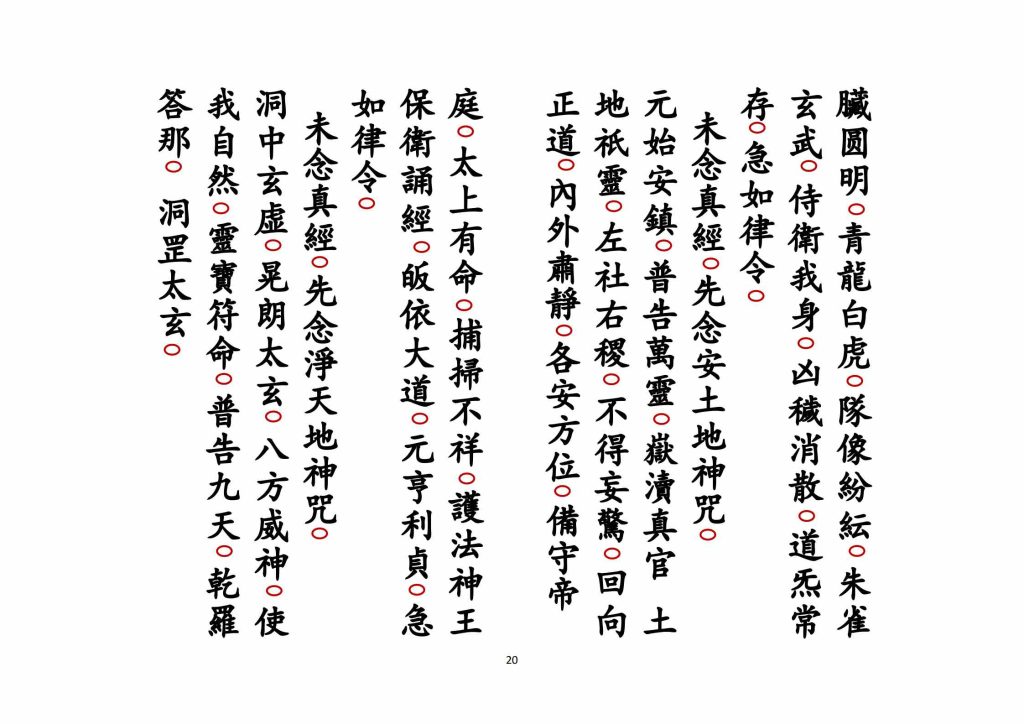 臟圆明○青龍白虎○隊像紛紜○朱雀
玄武○侍衛我身○凶穢消散○道炁常
存○急如律令○
未念真經○先念安土地神咒○
元始安鎮○普告萬靈○嶽瀆真官 土
地祇靈○左社右稷○不得妄驚○回向
正道○內外肅靜○各安方位○備守帝
庭○太上有命○捕掃不祥○護法神王
保衛誦經○皈依大道○元亨利貞○急
如律令○
未念真經○先念淨天地神咒○
洞中玄虛○晃朗太玄○八方威神○使
我自然○靈寶符命○普告九天○乾羅
答那○ 洞罡太玄○
20